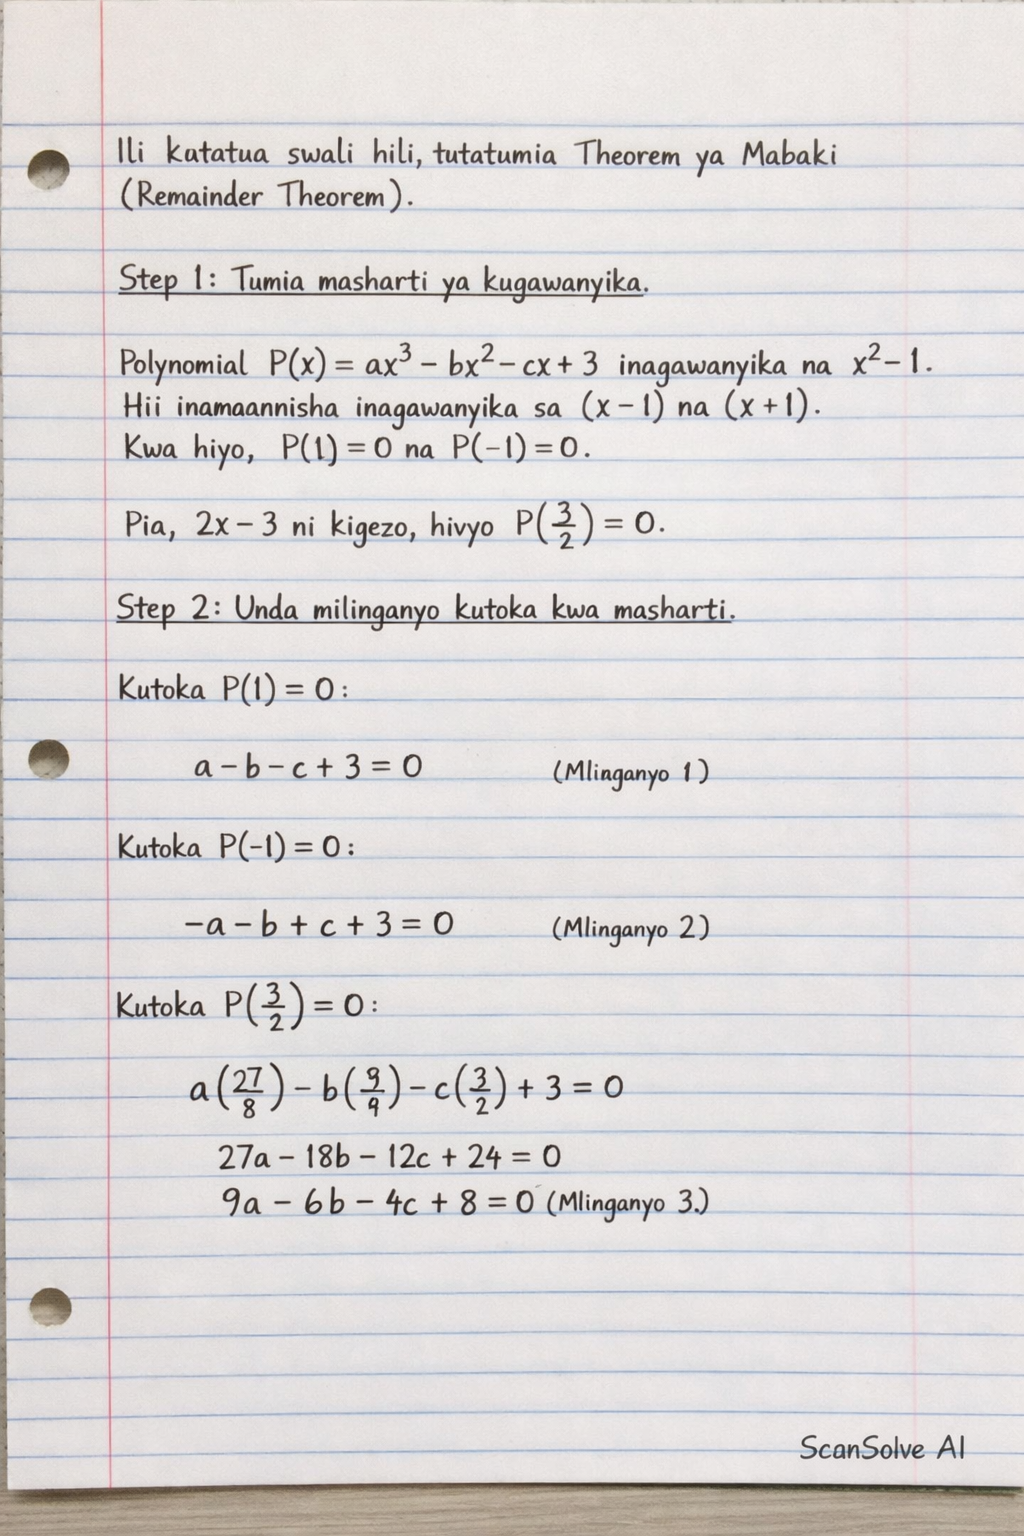 Ili katatua swali hili, tutatumia Theorem ya Mabaki
(Remainder Theorem).
Step 1: Tumia masharti ya kugawanyika.
Polynomial P(x) = ax³ – bx² – cx + 3 inagawanyika na x² – 1.
Hii inamaannisha inagawanyika sa (x – 1) na (x + 1).
Kwa hiyo, P(1) = 0 na P(–1) = 0.
Pia, 2x – 3 ni kigezo, hivyo P(3/2) = 0.
Step 2: Unda milinganyo kutoka kwa masharti.
Kutoka P(1) = 0:
a – b – c + 3 = 0 (Mlinganyo 1)
Kutoka P(–1) = 0:
–a – b + c + 3 = 0 (Mlinganyo 2)
Kutoka P(3/2) = 0:
a(27/8) – b(9/9) – c(3/2) + 3 = 0
27a – 18b – 12c + 24 = 0
9a – 6b – 4c + 8 = 0 (Mlinganyo 3.)
ScanSolve AI